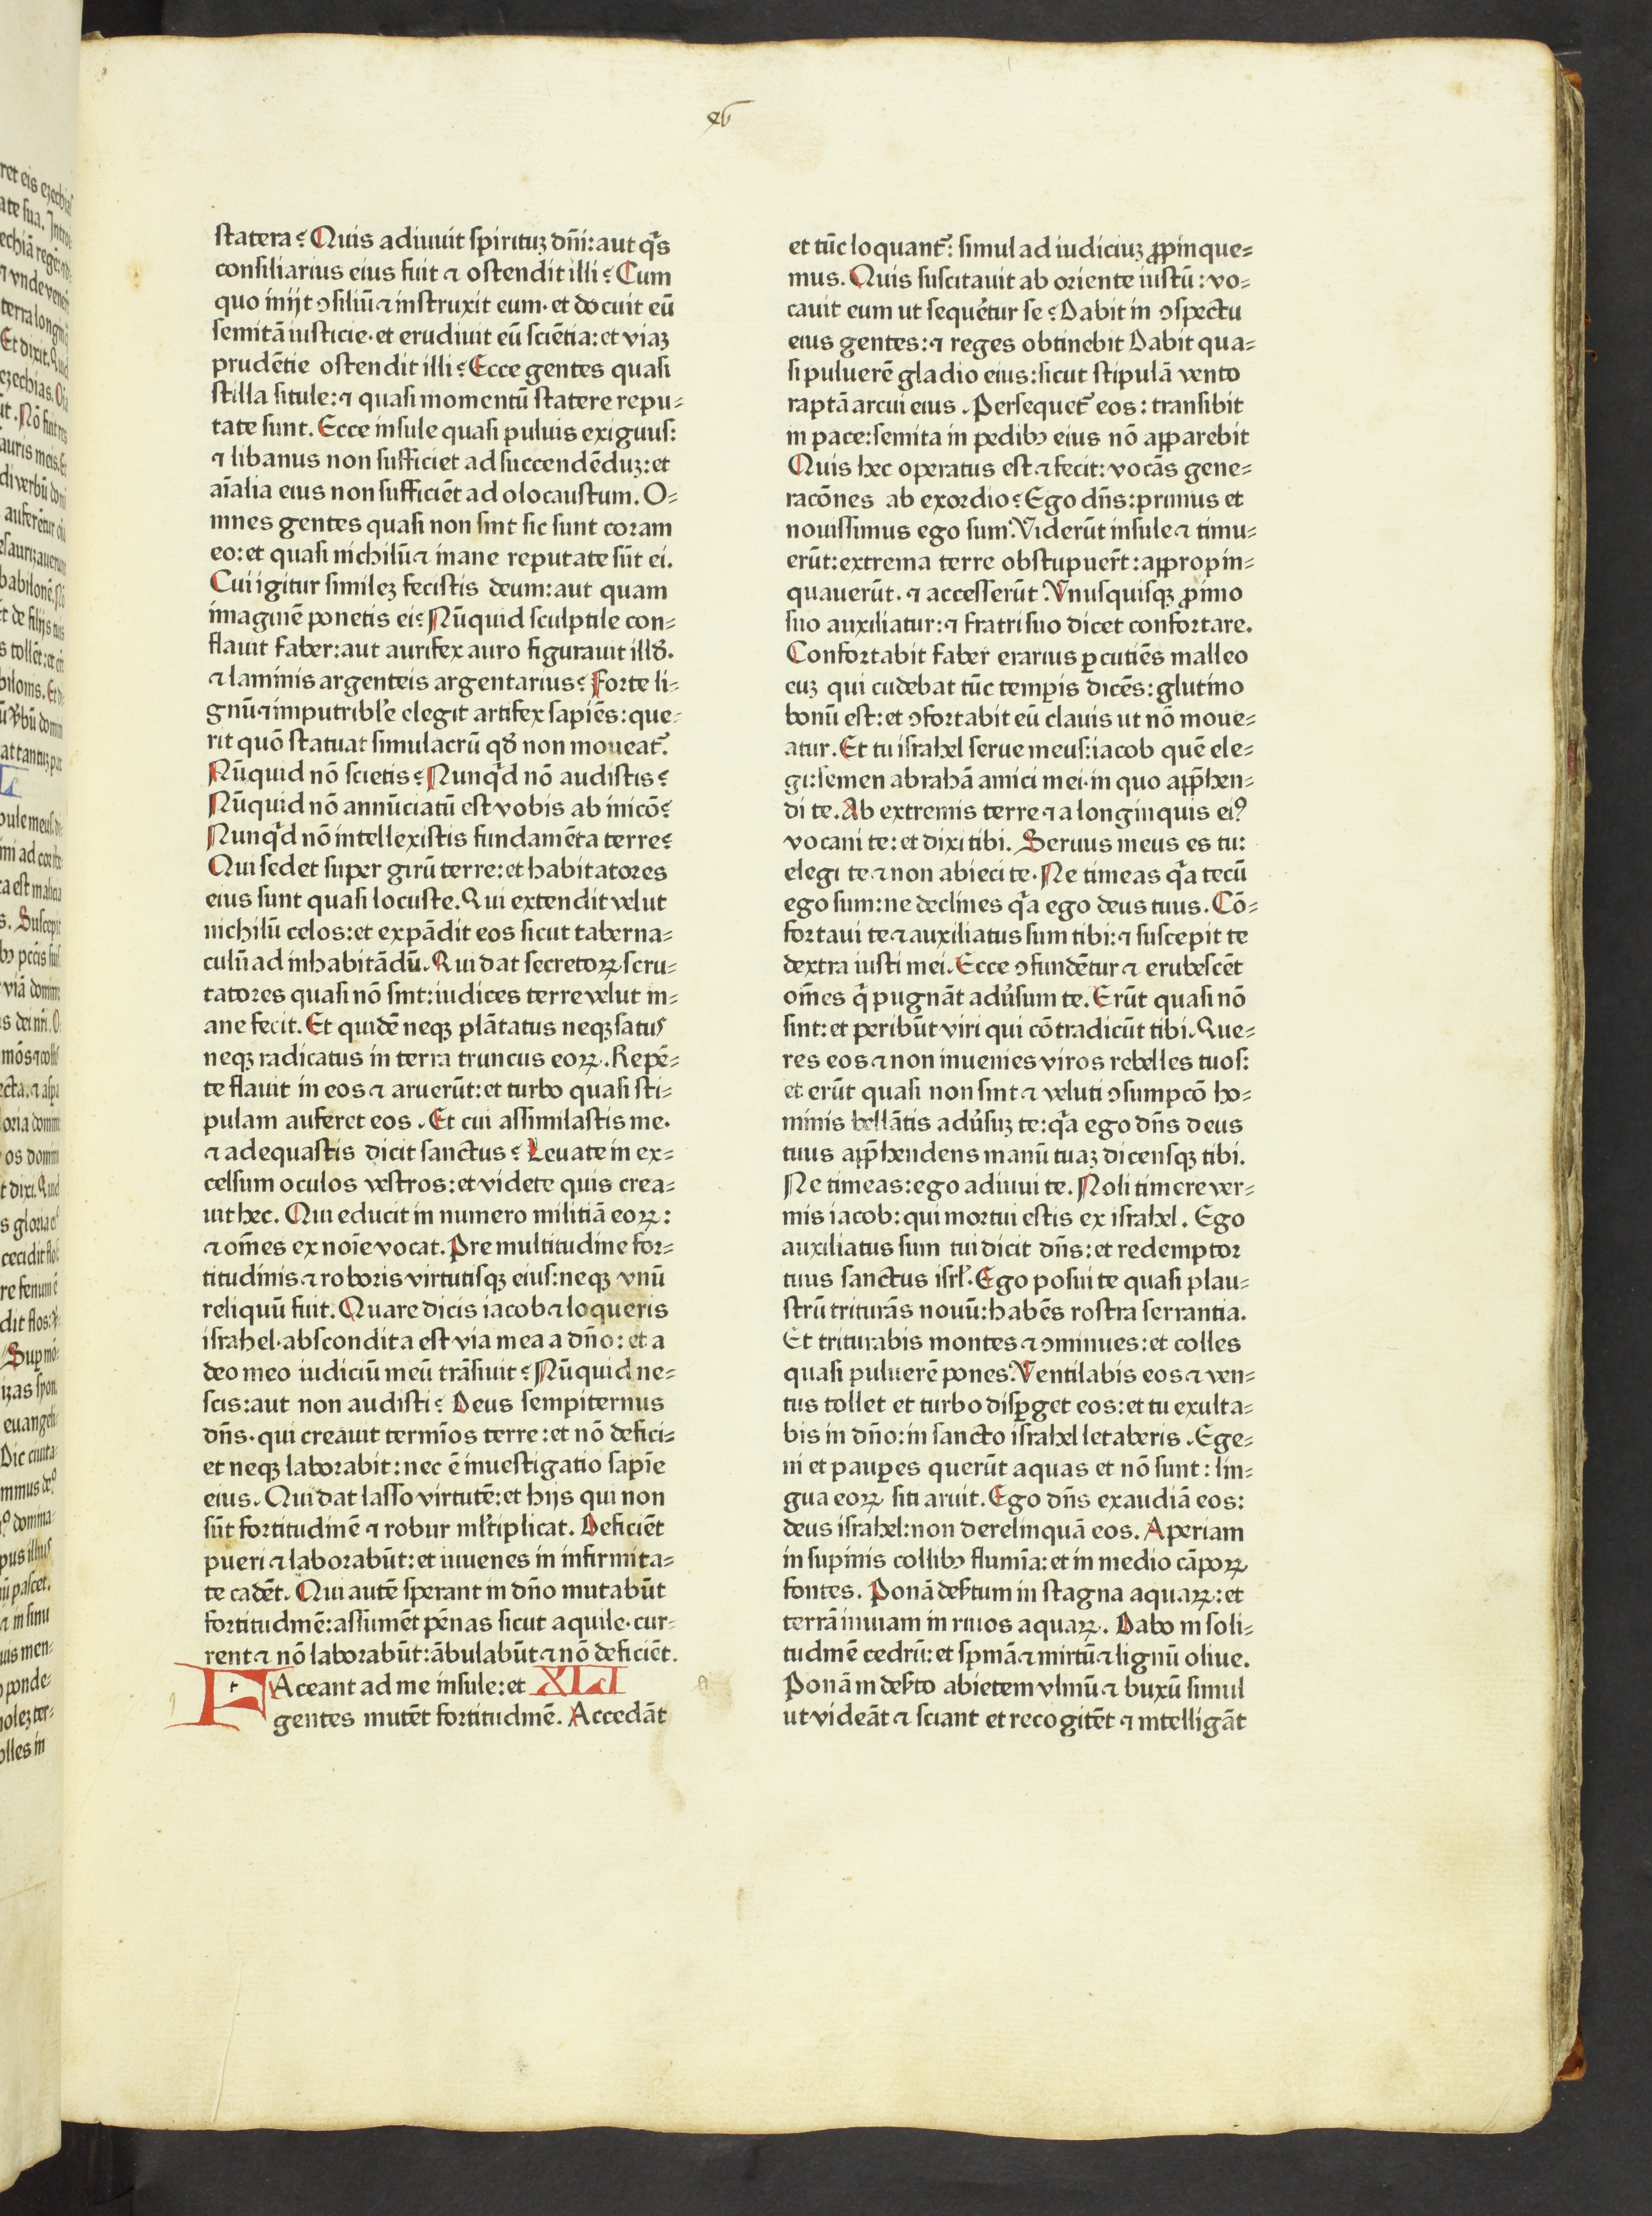 xv
statera? Quis adiuuit spirituꝫ dñi: aut q̃s
consiliarius eius fuit ⁊ ostendit illi? Cum
quo inijt ꝯsiliũ ⁊ instruxit eum· et docuit eũ
semitã iusticie· et erudiuit eũ sciẽtia: et viaꝫ
prudẽtie ostendit illi? Ecce gentes quasi
stilla situle: ⁊ quasi momentũ statere repu⸗
tate sunt. Ecce insule quasi puluis exiguus:
⁊ libanus non sufficiet ad succendẽduꝫ: et
aĩalia eius non sufficiẽt ad olocaustum. O⸗
mnes gentes quasi non sint sic sunt coram
eo: et quasi nichilũ ⁊ inane reputate sũt ei.
Cui igitur simileꝫ fecistis deum: aut quam
imaginẽ ponetis ei? Nũquid sculptile con⸗
flauit faber: aut aurifex auro figurauit illđ.
⁊ laminis argenteis argentarius? Forte li⸗
gnũ ⁊ imputribl'e elegit artifex sapiẽs: que⸗
rit quõ statuat simulacrũ qđ non moueat᷑.
Nũquid nõ scietis? Nunq̃d nõ audistis?
Nũquid nõ annũciatũ est vobis ab inicõ?
Nunq̃d nõ intellexistis fundamẽta terre?
Qui sedet super girũ terre: et habitatores
eius sunt quasi locuste. Qui extendit velut
nichilũ celos: et expãdit eos sicut taberna⸗
culũ ad inhabitãdũ. Qui dat secretoꝝ scru⸗
tatores quasi nõ sint: iudices terre velut in⸗
ane fecit. Et quidẽ neqꝫ plãtatus neqꝫ satus
neqꝫ radicatus in terra truncus eoꝝ. Repẽ⸗
te flauit in eos ⁊ aruerũt: et turbo quasi sti⸗
pulam auferet eos. Et cui assimilastis me·
⁊ adequastis dicit sanctus? Leuate in ex⸗
celsum oculos vestros: et videte quis crea⸗
uit hec. Qui educit in numero militiã eoꝝ:
⁊ om̃es ex noĩe vocat. Pre multitudine for⸗
titudinis ⁊ roboris virtutisqꝫ eius: neqꝫ vnũ
reliquũ fuit. Quare dicis iacob ⁊ loqueris
israhel· abscondita est via mea a dño: et a
deo meo iudiciũ meũ trãsiuit? Nũquid ne⸗
scis: aut non audisti? Deus sempiternus
dñs· qui creauit termĩos terre: et nõ defici⸗
et neqꝫ laborabit: nec ẽ inuestigatio sapĩe
eius. Qui dat lasso virtutẽ: et hijs qui non
sũt fortitudinẽ ⁊ robur ml'tiplicat. Deficiẽt
pueri ⁊ laborabũt: et iuuenes in infirmita⸗
te cadẽt. Qui autẽ sperant in dño mutabũt
fortitudinẽ: assumẽt pẽnas sicut aquile· cur⸗
rent ⁊ nõ laborabũt: ãbulabũt ⁊ nõ deficiẽt.
TAceant ad me insule: et XLI
gentes mutẽt fortitudinẽ. Accedãt
et tũc loquant᷑: simul ad iudiciuꝫ ꝓpinque⸗
mus. Quis suscitauit ab oriente iustũ: vo⸗
cauit eum ut sequẽtur se? Dabit in ꝯspectu
eius gentes: ⁊ reges obtinebit Dabit qua⸗
si puluerẽ gladio eius: sicut stipulã vento
raptã arcui eius. Persequet᷑ eos: transibit
in pace: semita in pedibꝫ eius nõ apparebit
Quis hec operatus est ⁊ fecit: vocãs gene⸗
racõnes ab exordio? Ego dñs: primus et
nouissimus ego sum. Viderũt insule ⁊ timu⸗
erũt: extrema terre obstupuerũt: appropin⸗
quauerũt· ⁊ accesserũt. Vnusquisqꝫ ꝓximo
suo auxiliatur: ⁊ fratri suo dicet confortare.
Confortabit faber erarius ꝑcutiẽs malleo
euꝫ qui cudebat tũc temꝑis dicẽs: glutino
bonũ est: et ꝯfortabit eũ clauis ut nõ moue⸗
atur. Et tu israhel serue meus: iacob quẽ ele⸗
gi: semen abrahã amici mei· in quo app̃hen⸗
di te. Ab extremis terre ⁊ a longinquis eiꝰ
vocaui te: et dixi tibi. Seruus meus es tu:
elegi te ⁊ non abieci te. Ne timeas q̃a tecũ
ego sum: ne declines q̃a ego deus tuus. Cõ⸗
fortaui te ⁊ auxiliatus sum tibi: ⁊ suscepit te
dextra iusti mei. Ecce ꝯfundẽtur ⁊ erubescẽt
om̃es q̃ pugnãt adũsum te. Erũt quasi nõ
sint: et peribũt viri qui cõtradicũt tibi. Que⸗
res eos ⁊ non inuenies viros rebelles tuos:
et erũt quasi non sint ⁊ veluti ꝯsumpcõ ho⸗
minis bellãtis adũsuꝫ te: q̃a ego dñs deus
tuus app̃hendens manũ tuaꝫ dicensqꝫ tibi.
Ne timeas: ego adiuui te. Noli timere ver⸗
mis iacob: qui mortui estis ex israhel. Ego
auxiliatus sum tui dicit dñs: et redemptor
tuus sanctus isrl'. Ego posui te quasi plau⸗
strũ triturãs nouũ: habẽs rostra serrantia.
Et triturabis montes ⁊ ꝯminues: et colles
quasi puluerẽ pones. Ventilabis eos ⁊ ven⸗
tus tollet et turbo disꝑget eos: et tu exulta⸗
bis in dño: in sancto israhel letaberis. Ege⸗
ni et pauꝑes querũt aquas et nõ sunt: lin⸗
gua eoꝝ siti aruit. Ego dñs exaudiã eos:
deus israhel: non derelinquã eos. Aperiam
in supinis collibꝫ flumĩa: et in medio cãpoꝝ
fontes. Ponã def'tum in stagna aquaꝝ: et
terrã inuiam in riuos aquaꝝ. Dabo in soli⸗
tudinẽ cedrũ: et spinã ⁊ mirtũ ⁊ lignũ oliue.
Ponã in def'to abietem vlmũ ⁊ buxũ simul
ut videãt ⁊ sciant et recogitẽt ⁊ intelligãt